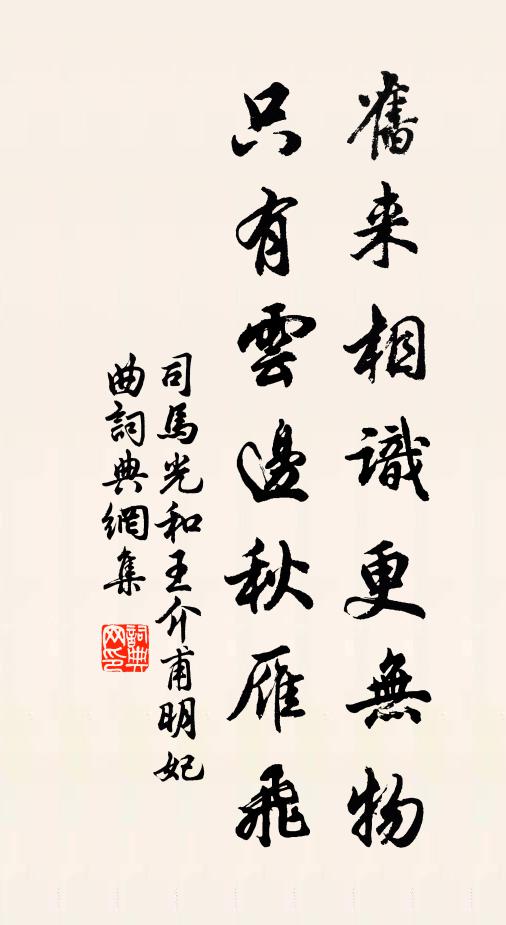 舊来相識更無物
只有雲邊秋雁飛
司馬光和王介甫明妃
曲詞典網集
詞典
网印